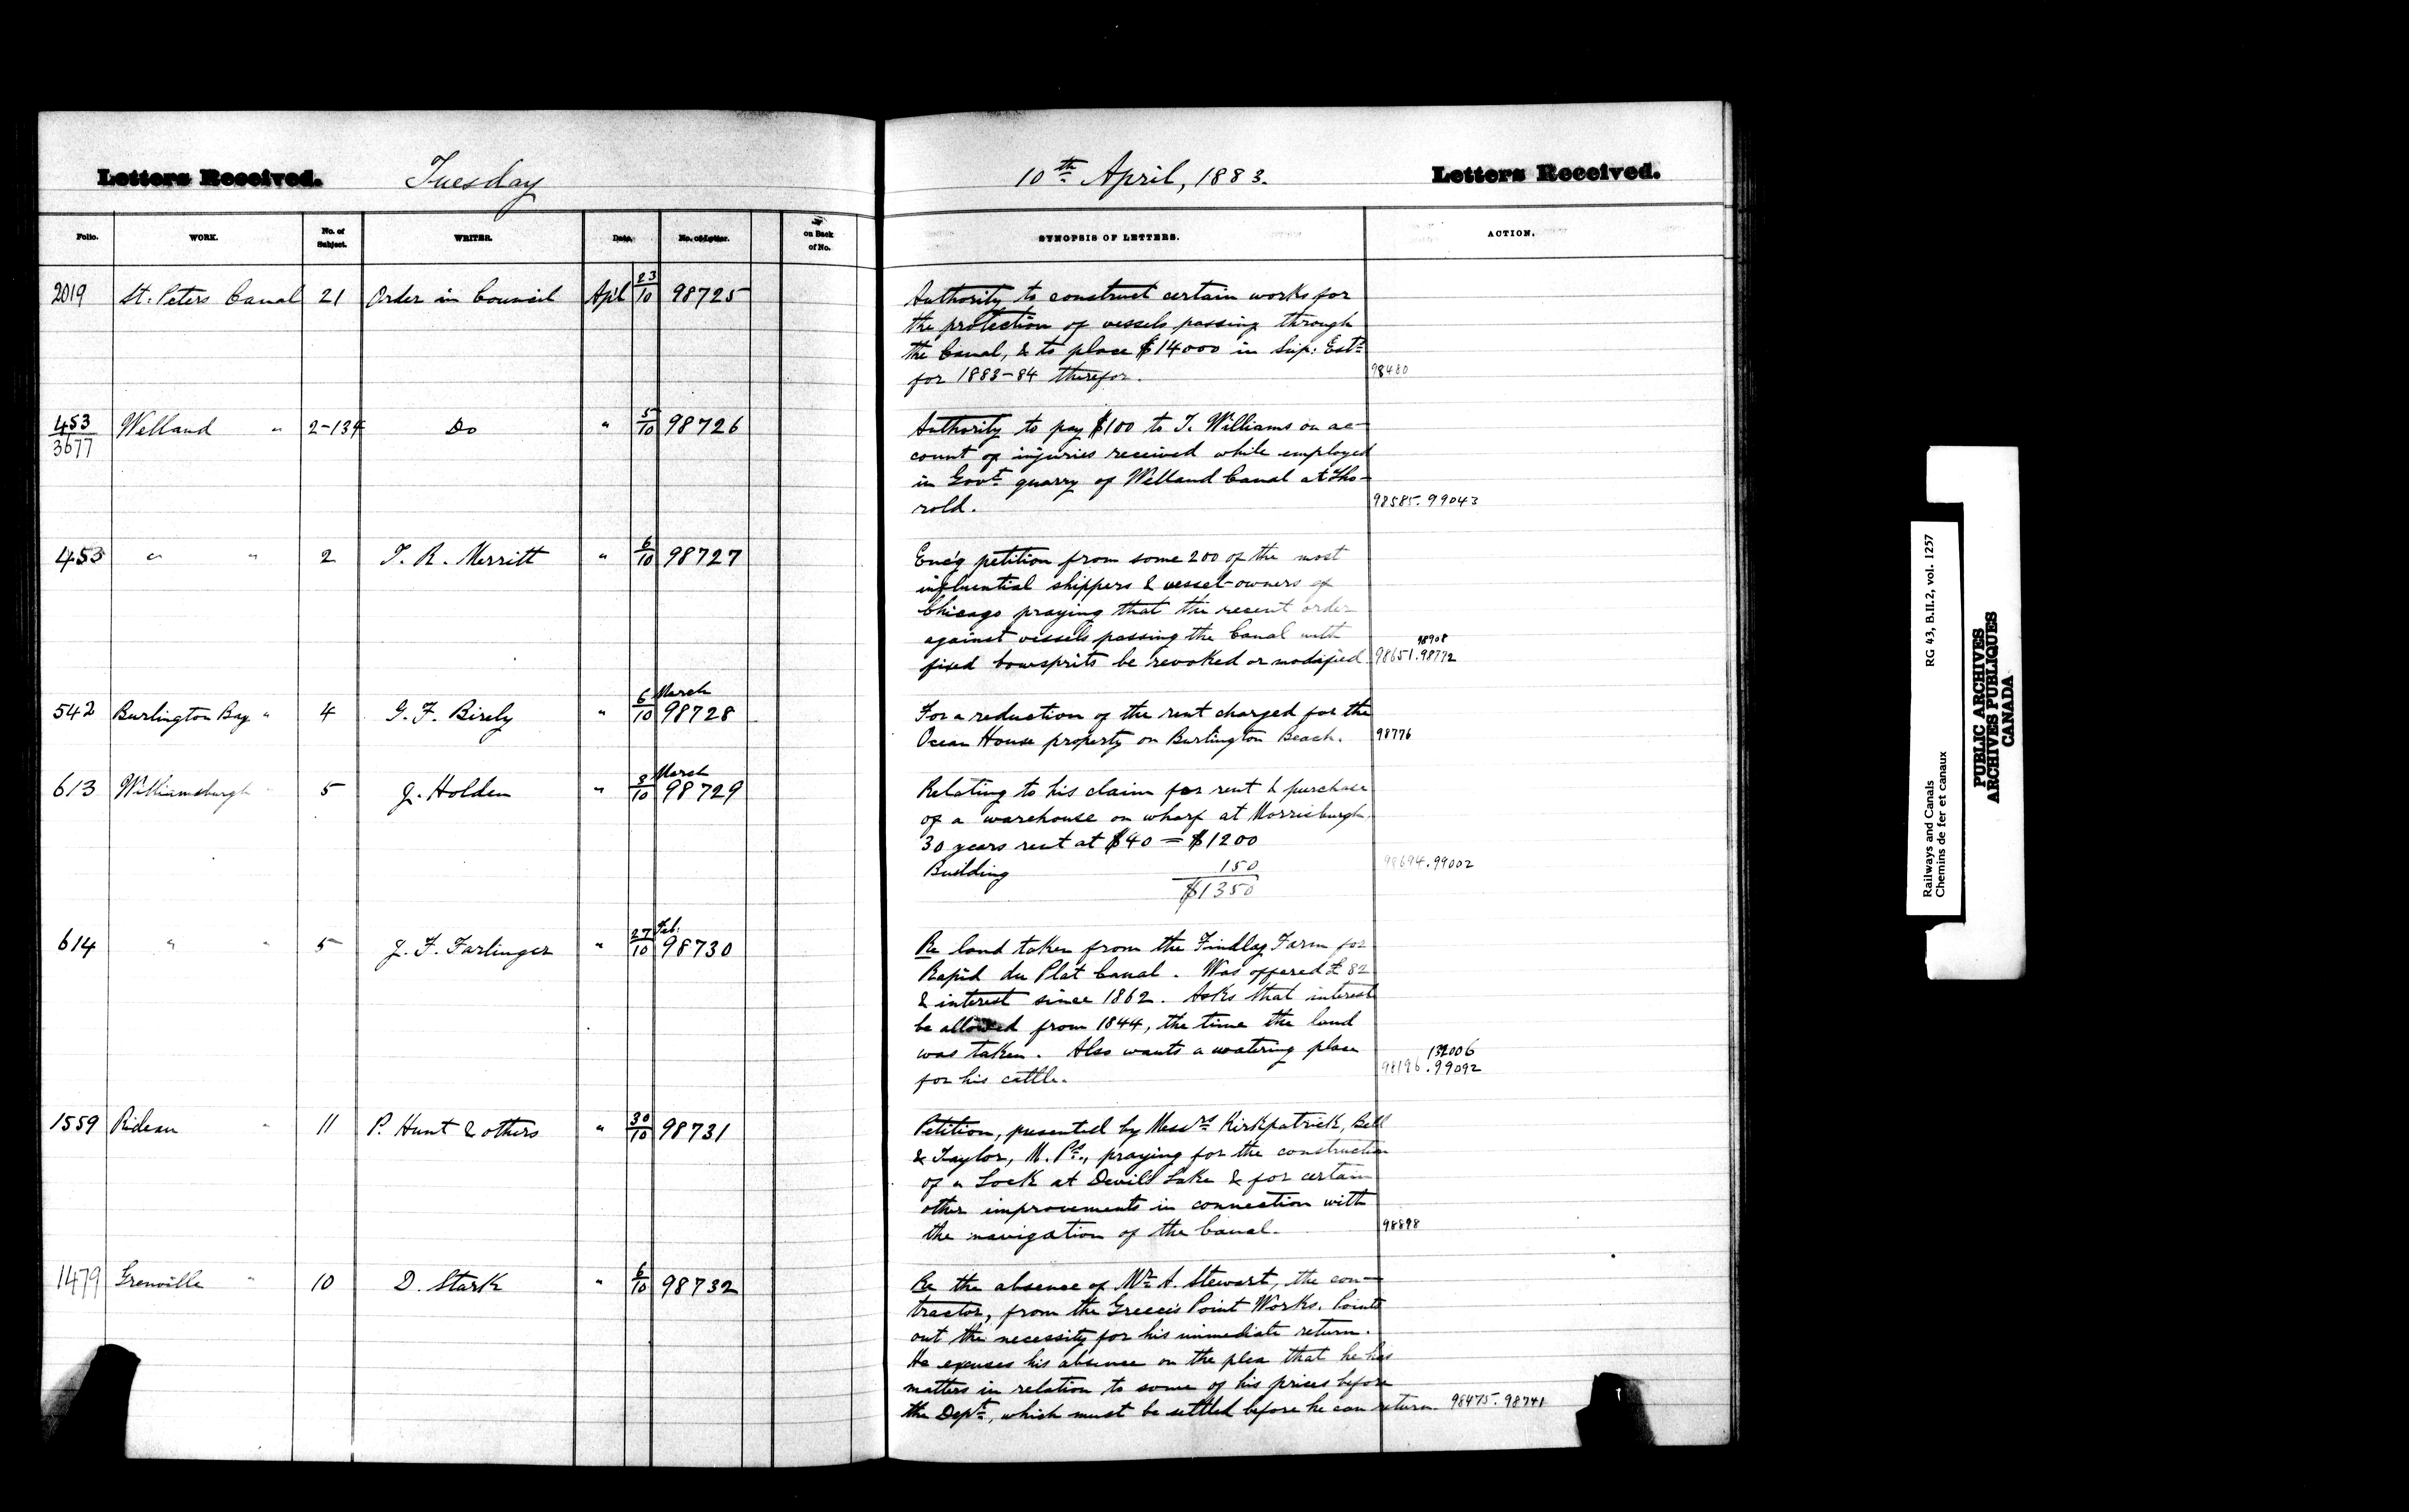 Letters Received. Tuesday
10th April, 1883. Letters Received.
Folio. WORK. No. of Subject. WRITER. Date. No. of Letter. on Back of No.
SYNOPSIS OF LETTERS. ACTION.
2019 St. Peters Canal 21 Order in Council Apl 23/10 98725
Authority to construct certain works for
the protection of vessels passing through
the Canal, & to place $14000 in Sup: Ests
for 1883-84 therefor. 98480
453/3677 Welland " 2-134 Do " 5/10 98726
Authority to pay $100 to T. Williams on ac-
count of injuries received while employed
in Govt quarry of Welland Canal at Tho-
rold. 98585. 99043
453 " " 2 T. R. Merritt " 6/10 98727
Enc'g petition from some 200 of the most
influential shippers & vessel-owners of
Chicago praying that the recent order
against vessels passing the Canal with
98908
fixed bowsprits be revoked or modified 98651. 98772
542 Burlington Bay " 4 G. F. Birely " 6/10 March 98728
For a reduction of the rent charged for the
Ocean House property on Burlington Beach. 98776
613 Williamsburgh " 5 J. Holden " 3/10 March 98729
Relating to his claim for rent & purchase
of a warehouse on wharf at Morrisburgh.
30 years rent at $40 = $1200
Building 150 98694. 99002
$1350
614 " " 5 J. F. Farlinger " 27/10 Feb. 98730
Re land taken from the Findlay Farm for
Rapid du Plat Canal. Was offered £82
& interest since 1862. Asks that interest
be allowed from 1844, the time the land
was taken. Also wants a watering place
132006
for his cattle. 98196. 99092
1559 Rideau " 11 P. Hunt & others " 30/10 98731
Petition, presented by Messrs Kirkpatrick, Bell
& Taylor, M.Ps., praying for the construction
of a Lock at Devils Lake & for certain
other improvements in connection with
the navigation of the Canal. 98898
1479 Grenville " 10 D. Stark " 6/10 98732
Re the absence of Mr A. Stewart, the con-
tractor, from the Greece's Point Works. Points
out the necessity for his immediate return.
He excuses his absence on the plea that he has
matters in relation to some of his prices before
the Dept, which must be settled before he can return. 98475. 98741
Railways and Canals RG 43, B.II.2, vol. 1257
Chemins de fer et canaux
PUBLIC ARCHIVES
ARCHIVES PUBLIQUES
CANADA